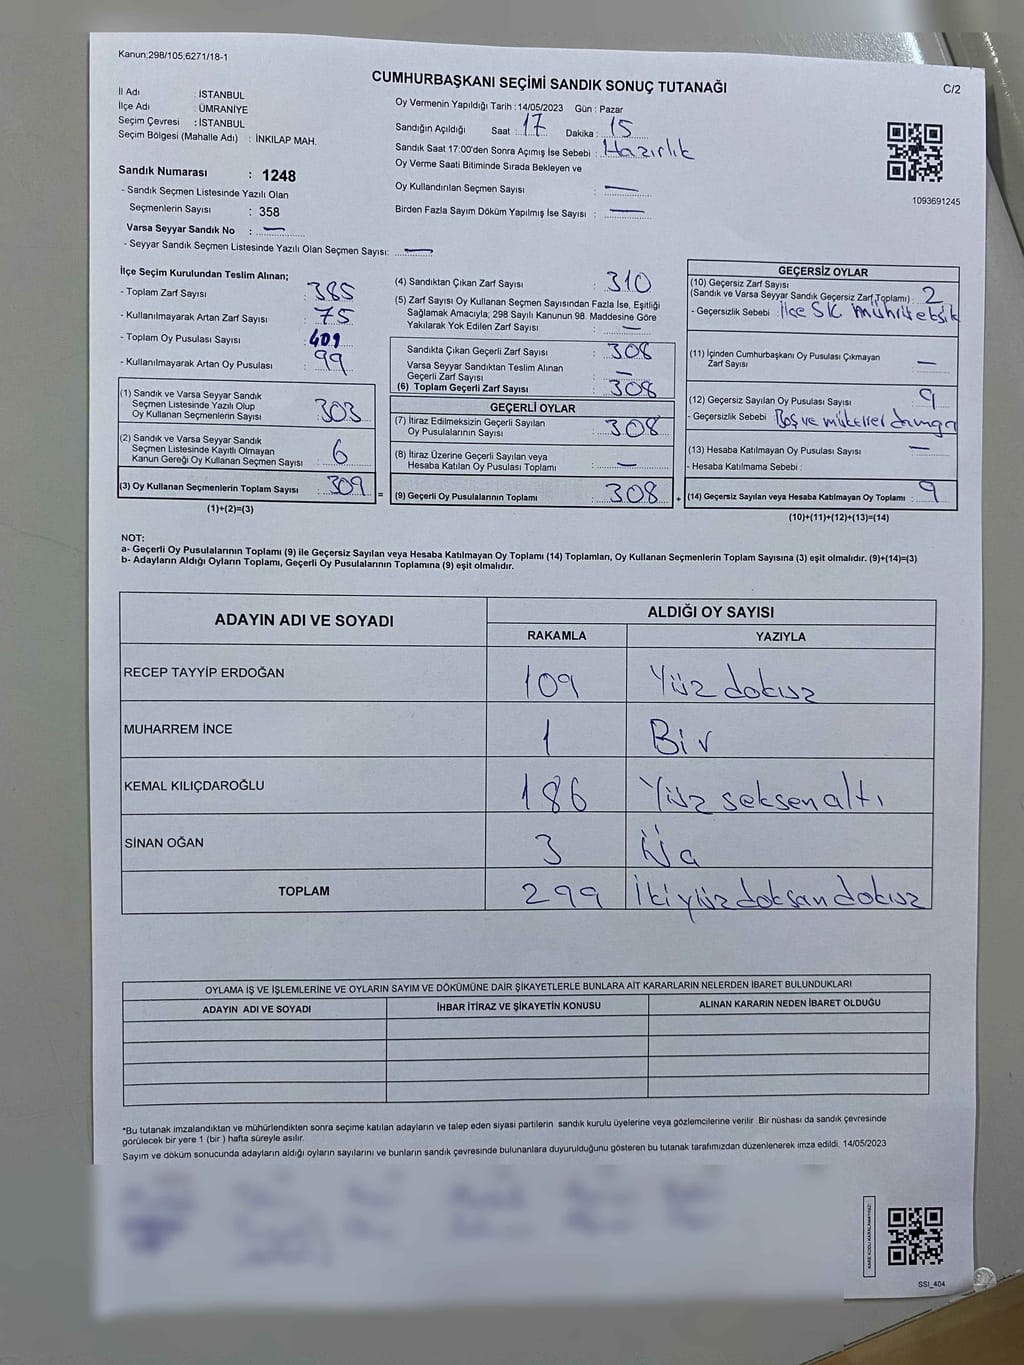 Kanun:298/105,6271/18-1
CUMHURBAŞKANI SEÇİMİ SANDIK SONUÇ TUTANAĞI
C/2
İl Adı : İSTANBUL
İlçe Adı : ÜMRANİYE
Seçim Çevresi : İSTANBUL
Seçim Bölgesi (Mahalle Adı) : İNKILAP MAH.
Oy Vermenin Yapıldığı Tarih : 14/05/2023 Gün : Pazar
Sandığın Açıldığı Saat : 17 Dakika : 15
Sandık Saat 17:00'den Sonra Açımış İse Sebebi : Hazırlık
Oy Verme Saati Bitiminde Sırada Bekleyen ve
Oy Kullandırılan Seçmen Sayısı : —
Birden Fazla Sayım Döküm Yapılmış İse Sayısı : —
1093691245
Sandık Numarası : 1248
- Sandık Seçmen Listesinde Yazılı Olan
Seçmenlerin Sayısı : 358
Varsa Seyyar Sandık No : —
- Seyyar Sandık Seçmen Listesinde Yazılı Olan Seçmen Sayısı: —
İlçe Seçim Kurulundan Teslim Alınan;
- Toplam Zarf Sayısı : 385
- Kullanılmayarak Artan Zarf Sayısı : 75
- Toplam Oy Pusulası Sayısı : 409
- Kullanılmayarak Artan Oy Pusulası : 99
(1) Sandık ve Varsa Seyyar Sandık
Seçmen Listesinde Yazılı Olup
Oy Kullanan Seçmenlerin Sayısı : 303
(2) Sandık ve Varsa Seyyar Sandık
Seçmen Listesinde Kayıtlı Olmayan
Kanun Gereği Oy Kullanan Seçmen Sayısı : 6
(3) Oy Kullanan Seçmenlerin Toplam Sayısı : 309 =
(1)+(2)=(3)
(4) Sandıktan Çıkan Zarf Sayısı : 310
(5) Zarf Sayısı Oy Kullanan Seçmen Sayısından Fazla İse, Eşitliği
Sağlamak Amacıyla; 298 Sayılı Kanunun 98. Maddesine Göre
Yakılarak Yok Edilen Zarf Sayısı : —
Sandıkta Çıkan Geçerli Zarf Sayısı : 308
Varsa Seyyar Sandıktan Teslim Alınan
Geçerli Zarf Sayısı : —
(6) Toplam Geçerli Zarf Sayısı : 308
GEÇERLİ OYLAR
(7) İtiraz Edilmeksizin Geçerli Sayılan
Oy Pusulalarının Sayısı : 308
(8) İtiraz Üzerine Geçerli Sayılan veya
Hesaba Katılan Oy Pusulası Toplamı : —
(9) Geçerli Oy Pusulalarının Toplamı : 308 +
GEÇERSİZ OYLAR
(10) Geçersiz Zarf Sayısı
(Sandık ve Varsa Seyyar Sandık Geçersiz Zarf Toplamı) : 2
- Geçersizlik Sebebi : İlçe SK mührü eksik
(11) İçinden Cumhurbaşkanı Oy Pusulası Çıkmayan
Zarf Sayısı : —
(12) Geçersiz Sayılan Oy Pusulası Sayısı : 9
- Geçersizlik Sebebi : Boş ve mükerrer damga
(13) Hesaba Katılmayan Oy Pusulası Sayısı : —
- Hesaba Katılmama Sebebi :
(14) Geçersiz Sayılan veya Hesaba Katılmayan Oy Toplamı : 9
(10)+(11)+(12)+(13)=(14)
NOT:
a- Geçerli Oy Pusulalarının Toplamı (9) ile Geçersiz Sayılan veya Hesaba Katılmayan Oy Toplamı (14) Toplamları, Oy Kullanan Seçmenlerin Toplam Sayısına (3) eşit olmalıdır. (9)+(14)=(3)
b- Adayların Aldığı Oyların Toplamı, Geçerli Oy Pusulalarının Toplamına (9) eşit olmalıdır.
ADAYIN ADI VE SOYADI ALDIĞI OY SAYISI
RAKAMLA YAZIYLA
RECEP TAYYİP ERDOĞAN 109 Yüz dokuz
MUHARREM İNCE 1 Bir
KEMAL KILIÇDAROĞLU 186 Yüz seksen altı
SİNAN OĞAN 3
TOPLAM 299 İki yüz doksan dokuz
OYLAMA İŞ VE İŞLEMLERİNE VE OYLARIN SAYIM VE DÖKÜMÜNE DAİR ŞİKAYETLERLE BUNLARA AİT KARARLARIN NELERDEN İBARET BULUNDUKLARI
ADAYIN ADI VE SOYADI İHBAR İTİRAZ VE ŞİKAYETİN KONUSU ALINAN KARARIN NEDEN İBARET OLDUĞU
*Bu tutanak imzalandıktan ve mühürlendikten sonra seçime katılan adayların ve talep eden siyasi partilerin sandık kurulu üyelerine veya gözlemcilerine verilir Bir nüshası da sandık çevresinde
görülecek bir yere 1 (bir ) hafta süreyle asılır.
Sayım ve döküm sonucunda adayların aldığı oyların sayılarını ve bunların sandık çevresinde bulunanlara duyurulduğunu gösteren bu tutanak tarafımızdan düzenlenerek imza edildi. 14/05/2023
SSI_404